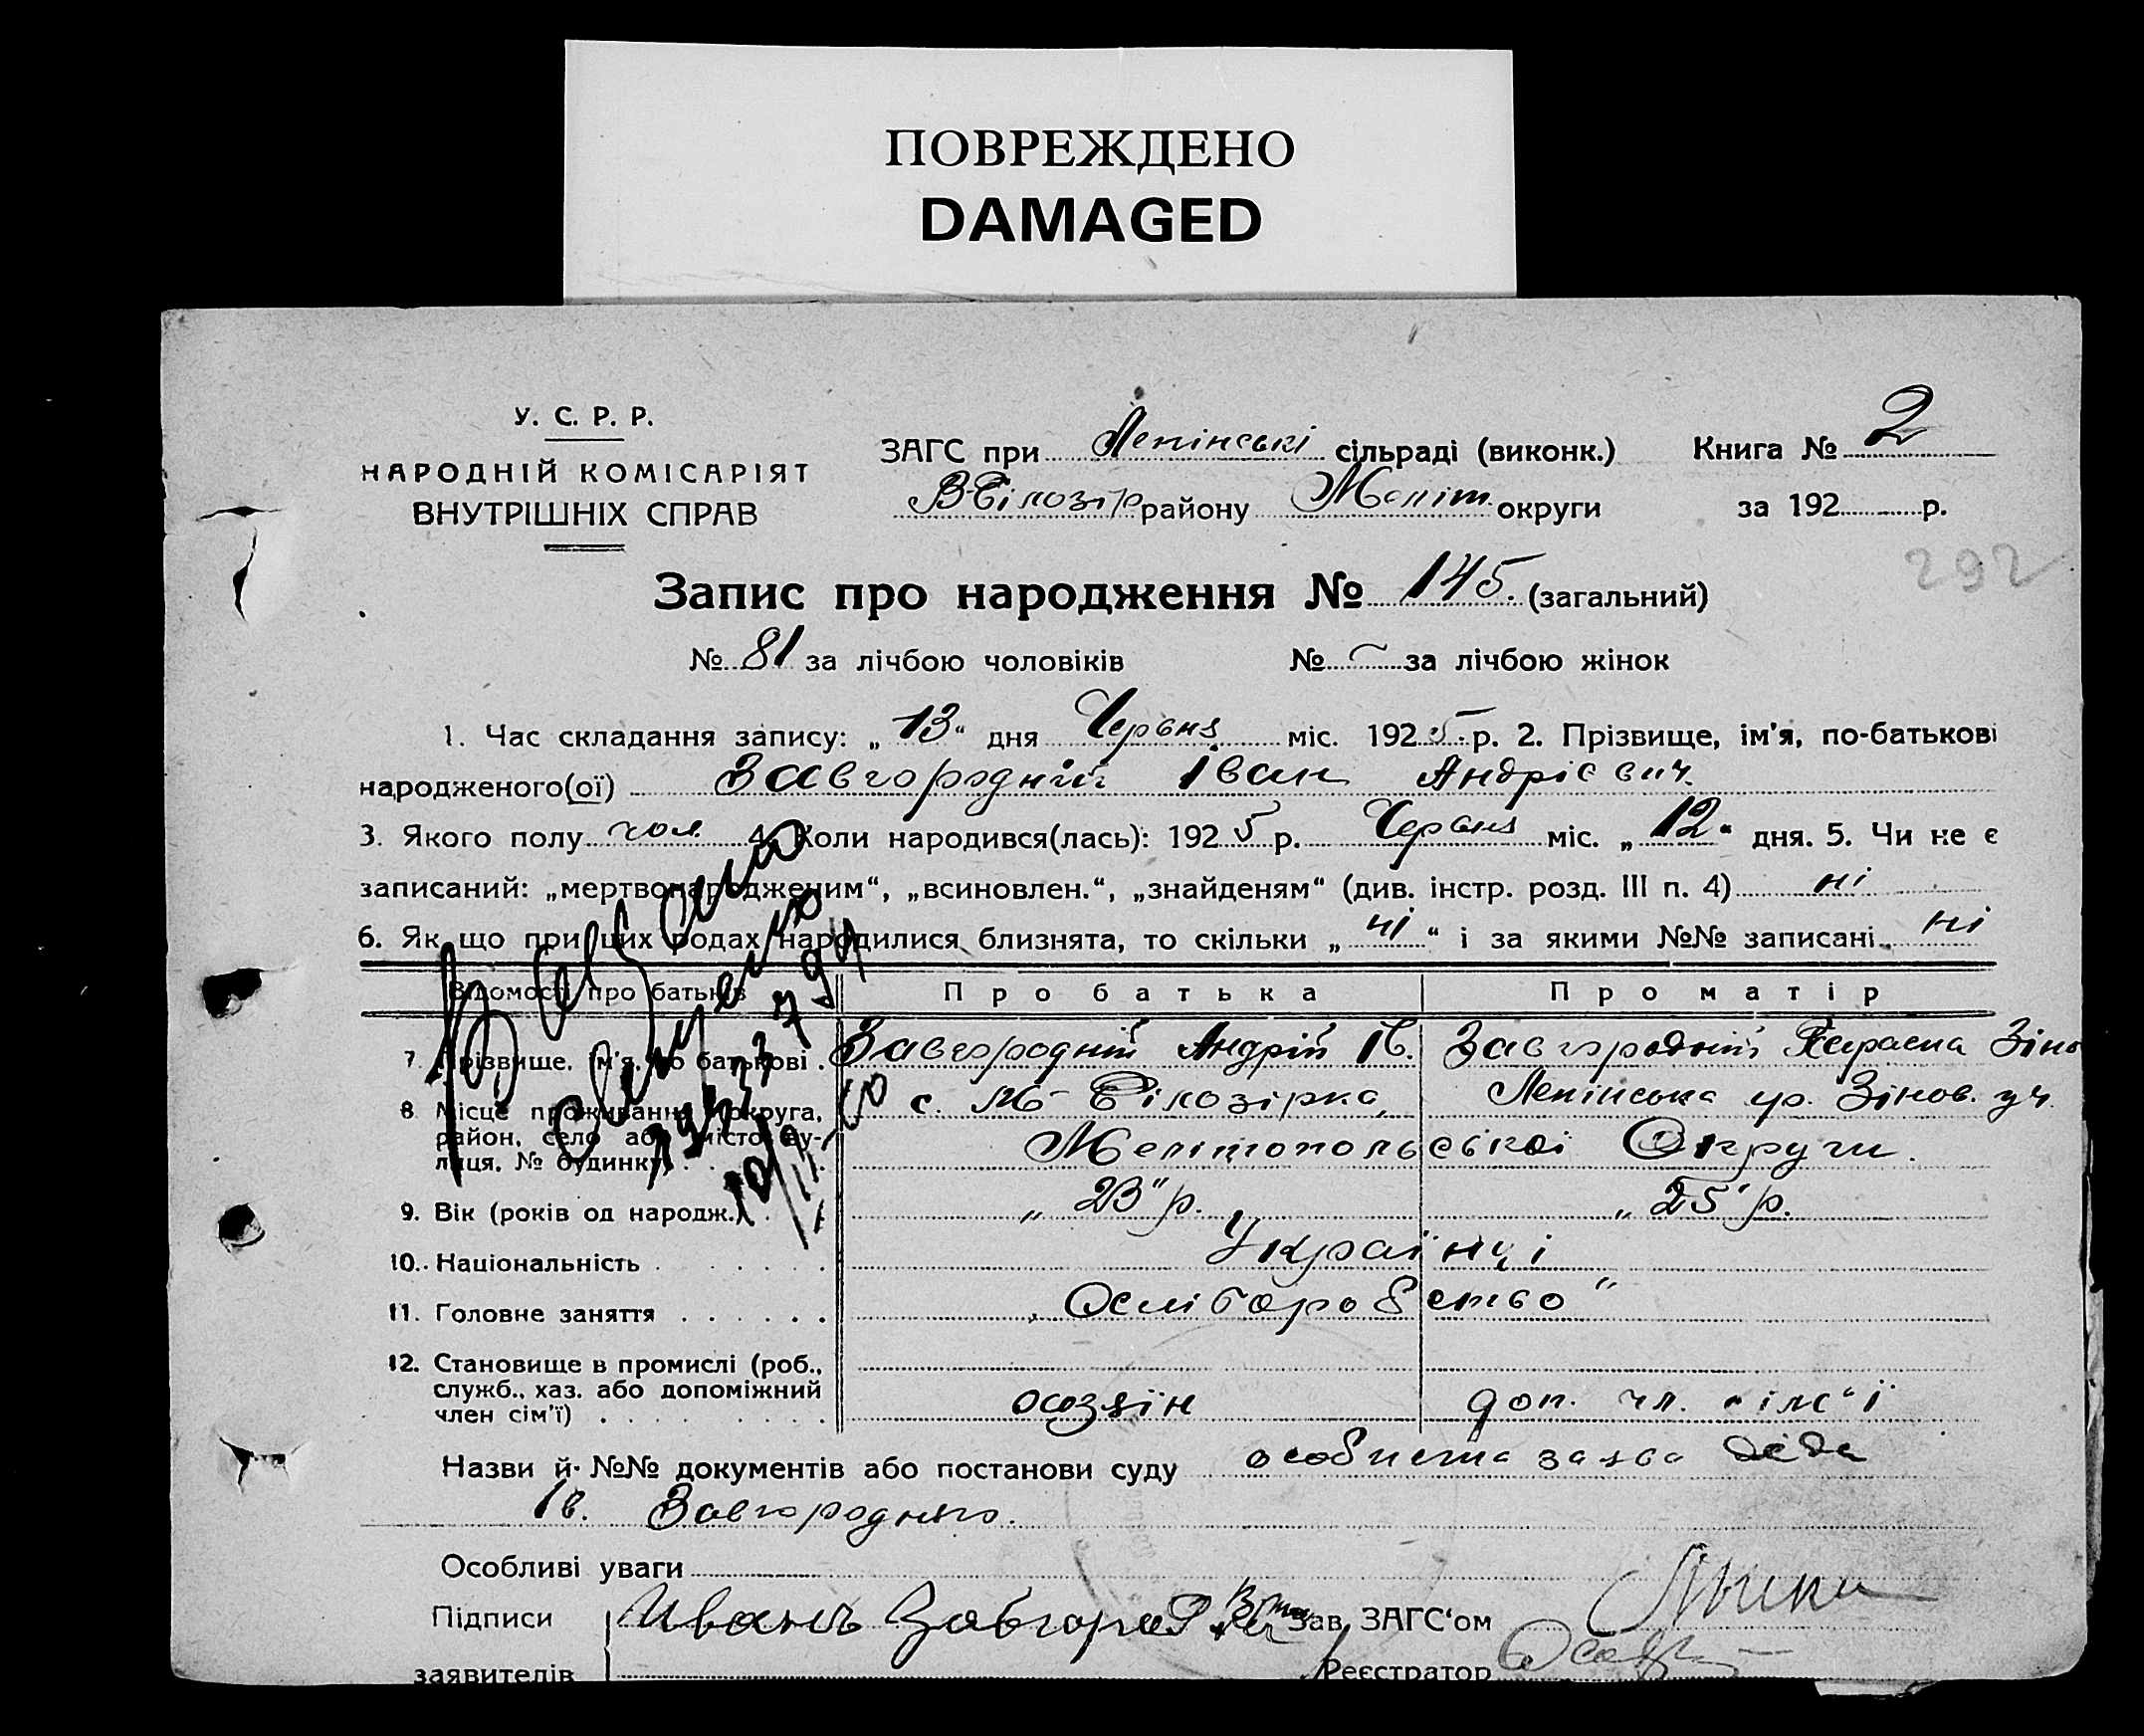 ПОВРЕЖДЕНО
DAMAGED
У. С. Р. Р.
НАРОДНІЙ КОМІСАРІЯТ
ВНУТРІШНІХ СПРАВ
ЗАГС при Ленінські сільраді (виконк.) Книга № 2
В-Білозір району Меліт. округи за 192 р.
292
Запис про народження № 145. (загальний)
№ 81 за лічбою чоловіків № – за лічбою жінок
1. Час складання запису: „13“ дня Червня міс. 1925 р. 2. Прізвище, ім'я, по-батькові
народженого(ої) Завгородній Іван Андрієвич.
3. Якого полу чол. 4. Коли народився(лась): 1925 р. Червня міс. „12“ дня. 5. Чи не є
записаний: „мертвонародженим“, „всиновлен.“, „знайденям“ (див. інстр. розд. III п. 4) ні
6. Як що при цих родах народилися близнята, то скільки „ні“ і за якими №№ записані ні
Відомості про батьків Про батька Про матір
7. Прізвище, ім'я, по батькові . Завгородній Андрій Ів. Завгородній Параска Зінь
8. Місце проживання (округа, с. Мб-Білозірка, Ленінська ур. Зінов. уч.
район, село або місто, ву- Мелітопольської Округи.
лиця, № будинку) . . . .
9. Вік (років од народж.) . . „23“ р. „25“ р.
10. Національність . . . . . Українці
11. Головне заняття . . . . . . „Хліборобство“
12. Становище в промислі (роб.,
служб., хаз. або допоміжний
член сім'ї) . . . . . . . . хозяїн доп. чл. сім'ї
Назви й №№ документів або постанови суду особиста заява діда
Ів. Завгороднього.
Особливі уваги
Підписи Иванъ Зав. ЗАГС'ом
заявителів Реєстратор